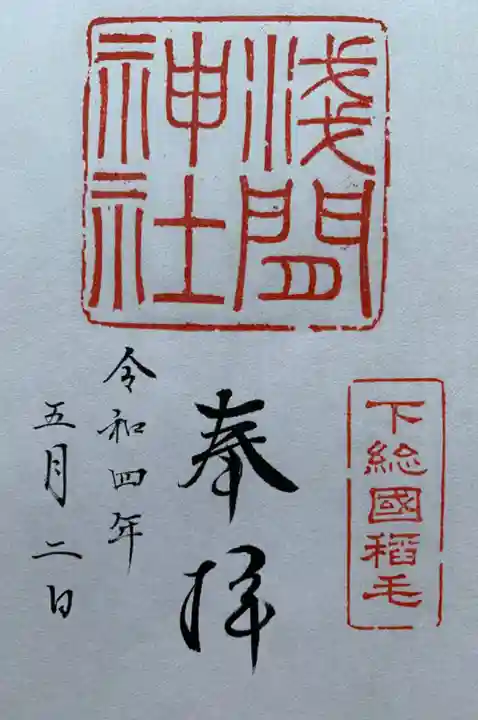 浅間
神社
下総國稻毛
奉拝
令和四年
五月二日